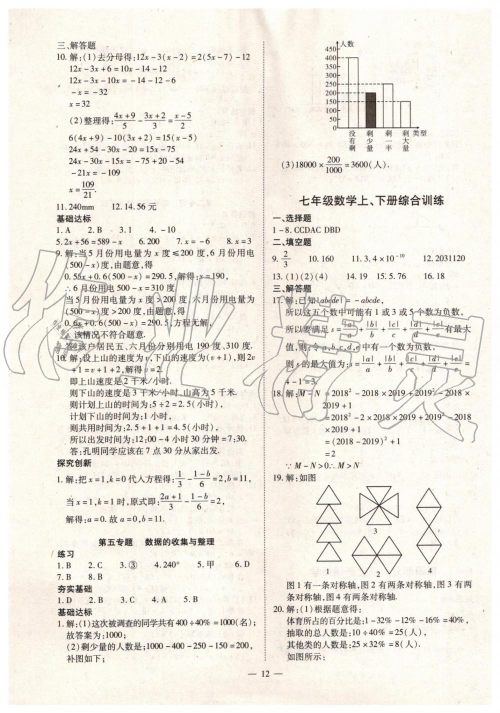 三、解答题
10. 解:(1)去分母得:12x-3(x-2)=2(5x-7)-12
12x-3x+6=10x-14-12
12x-3x-10x=-14-12-6
-x=-32
x=32
(2)整理得:(4x+9)/5-(3x+2)/3=(x-5)/2
6(4x+9)-10(3x+2)=15(x-5)
24x+54-30x-20=15x-75
24x-30x-15x=-75+20-54
-21x=-109
x=109/21.
11. 240mm 12. 14.56元
基础达标
1. A 2. B 3. 1 4. -10
5. 2x+56=589-x 6. 200 7. x=-6 8. x=3
9. 解:当5月份用电量为x度≤200度,6月份用电
(500-x)度,由题意,得
0.55x+0.6(500-x)=290.5,解得:x=190,
∴6月份用电500-x=310度
当5月份用电量为x度>200度,六月份用电量为
(500-x)度>200度,由题意,得
0.6x+0.6(500-x)=290.5,方程无解,
∴该情况不符合题意.
答:该户居民五、六月份分别用电190度、310度.
10. 解:设上山的速度为v,下山的速度为(v+1),则2v
+1=v+1+2,解得v=2.
即上山速度是2千米/小时.
则下山的速度是3千米/小时,山高为5千米.
则计划上山的时间为:5÷2=2.5(小时),
计划下山的时间为:1小时,
则共用时间为:2.5+1+1=4.5(小时),
所以出发时间为:12:00-4小时30分钟=7:30.
答:孔明同学应该在7点30分从家出发.
探究创新
1. 解:把x=1,k=0代入方程得:1/3-(1-b)/6=2,b=11,
当x=1,k=1时,原式即:(2a+1)/3-(1-b)/6=2,
解得:a=0. 故a=0,b=11.
第五专题 数据的收集与整理
练习
1. B 2. C 3. ③ 4. 240° 5. 甲 6. D
7. B 8. B
夯实基础
1. D 2. B 3. C 4. A 5. B
基础达标
1. 解:(1)这次被调查的同学共有400÷40%=1000(名);
故答案为:1000;
(2)剩少量的人数是;1000-400-250-150=200,
补图如下;
人数
450
400
350
300
250
200
150
100
50
没有剩 剩少量 剩一半 剩大量 类型
(3)18000×200/1000=3600(人).
七年级数学上、下册综合训练
一、选择题
1-8. CCDAC DBD
二、填空题
9. 2/3 10. 160 11. 3.4×10⁻¹⁰ 12. 2031120
13. (1)(2)(4) 14. 19 15. 5.76 16. 18
三、解答题
17. 解:已知|abcde|=-abcde,
所以这五个数中可能有1或3或5个数为负数,
所以要满足s=|a|/a+|b|/b+|c|/c+|d|/d+|e|/e有最大
值,则:令a,b,c,d,e中有一个数为负数,
则s的最大值为:s=|a|/a+|b|/b+|c|/c+|d|/d+|e|/e=
4-1=3.
18. 解:M-N=2018²-2018×2019+2019²-2018×
2019+1
=2018²-2×2018×2019+2019²-2018
×2019+1
=(2018-2019)²+1
=2
∵M-N>0∴M>N
19. 解:如图
图1有一条对称轴,图2有两条对称轴,图3有两
条对称轴,图4有两条对称轴.
20. 解:(1)根据题意得:
体育所占的百分比是:1-32%-12%-16%=40%,
抽取的总人数是:10÷40%=25(人),
其他类的人数是:25×32%=8(人).
如图所示:
— 12 —